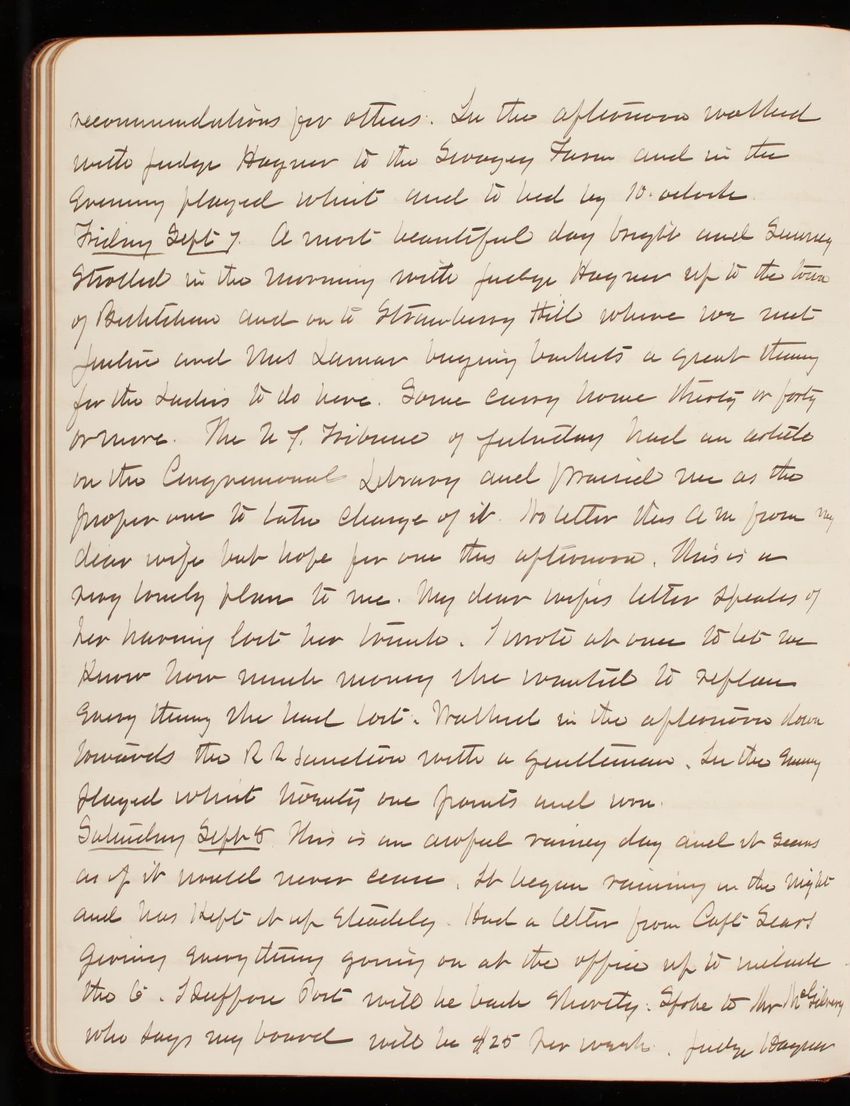 recommendations for others. In the afternoon walked
with Judge Hagner to the Swagey Farm and in the
Evening played whist and to bed by 10 oclock.
Friday Sept 7. A most beautiful day bright and Sunney
Strolled in the morning with Judge Hagner up to the town
of Bethlehem and on to Strawberry Hill where we met
and Mrs Lamar buying baskets a great thing
for the Ladies to do here. Some carry home thirty or forty
or more. The N Y. Tribune of Saturday had an article
on the Congressional Library and praised me as the
proper one to take charge of it. No letter this A M from my
dear wife but hope for one this afternoon. This is a
very lonely place to me. My dear wife's letter speaks of
her having lost her trunk. I wrote at once to let me
Know how much money she wanted to replace
Every thing she had lost. Walked in the afternoon down
towards the R R Junction with a gentleman. In the Evening
played whist twenty one points and won.
Saturday Sept 8 This is an awful rainey day and it seems
as if it would never cease. It began raining in the night
and has Kept it up Steadily. Had a letter from Capt Sears
giving Every thing going on at the office up to include
the 6. I suppose Post will be back Shortly. Spoke to Mr McGilvery
who says my board will be $25 per week. Judge Hagner